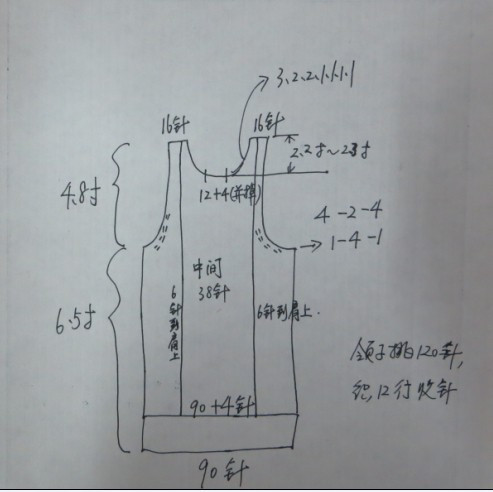 3.2.2.1.1.1.1
16针
16针
2.2寸~2.3寸
12+4(并掉)
4.8寸
4-2-4
1-4-1
中间
38针
6针到肩上
6针到肩上.
6.5寸
领子挑120针,
织12行收针
90+4针
90针